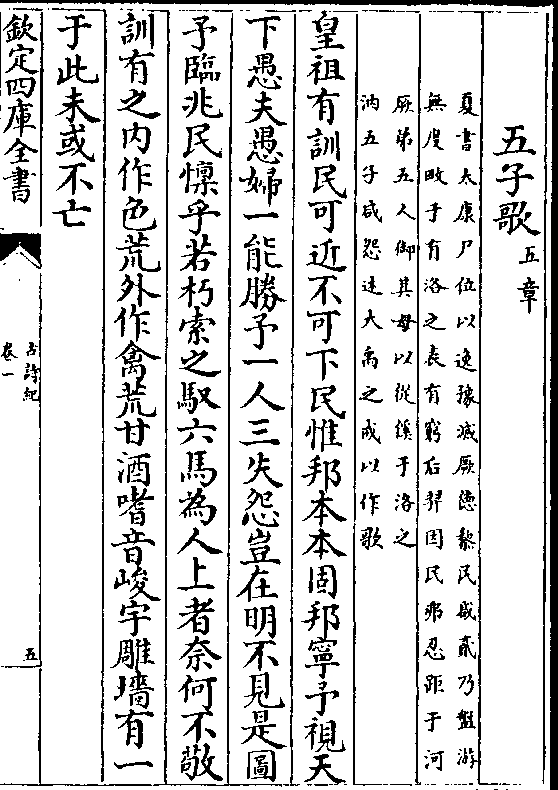 五子歌五章
夏書太康尸位以逸豫滅厥德黎民咸貳乃盤游
無度畋于有洛之表有窮后羿因民弗忍距于河
厥弟五人御其母以從徯于洛之
汭五子咸怨述大禹之戒以作歌
皇祖有訓民可近不可下民惟邦本本固邦寧予視天
下愚夫愚婦一能勝予一人三失怨豈在明不見是圖
予臨兆民懍乎若朽索之馭六馬為人上者奈何不敬
訓有之内作色荒外作禽荒甘酒嗜音峻宇雕墻有一
于此未或不亡
欽定四庫全書
古詩紀
卷一
五